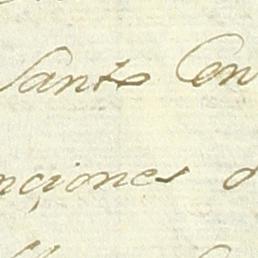 Santo Con
nçiones d